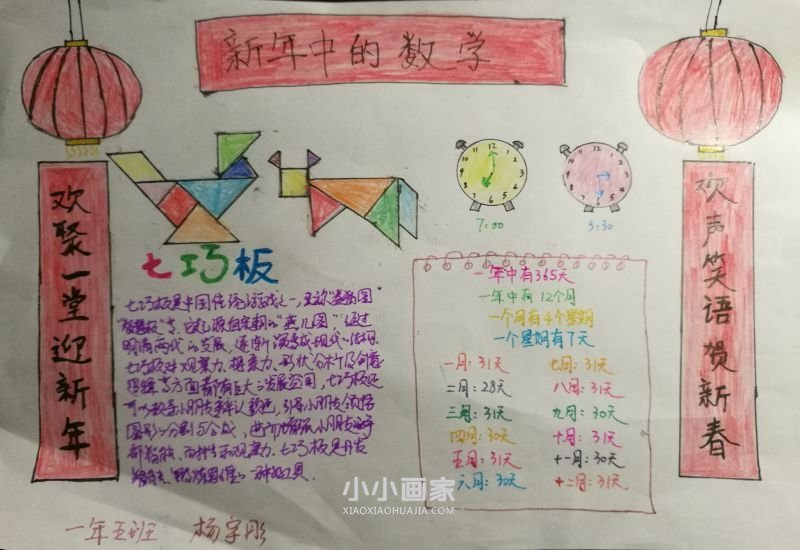 新年中的数学
欢聚一堂迎新年
欢声笑语贺新春
12
1
2
3
4
5
6
7
8
9
10
11
7:00
12
1
2
3
4
5
6
7
8
9
10
11
3:30
七巧板
七巧板是中国传统游戏之一,又称"益智图"
"智慧板"等,它起源自宋朝的"燕几图",通过
明清两代的发展,逐渐演变成现代的
七巧板对观察力、想象力、形状分析及创意
逻辑等方面都有巨大的发展空间,七巧板还
可以教导小朋友辨认颜色,引导小朋友领悟
图形的分割与合成,进而增强小朋友的
观察力。七巧板是开发
的一种好工具.
一年中有365天
一年中有12个月
一个月有4个星期
一个星期有7天
一月:31天
二月:28天
三月:31天
四月:30天
五月:31天
六月:30天
七月:31天
八月:31天
九月:30天
十月:31天
十一月:30天
十二月:31天
一年五班 杨宇彤
小小画家
XIAOXIAOHUAJIA.COM